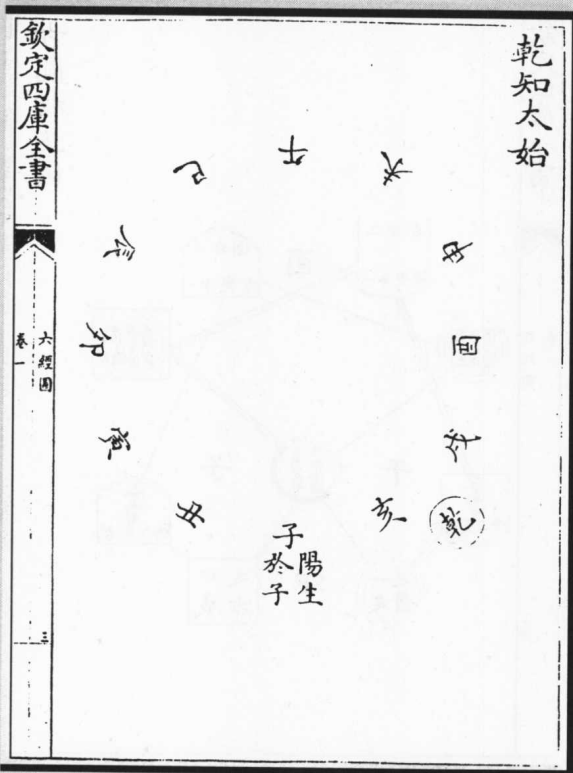 乾知太始
午
未
申
酉
戌
亥
乾
子
陽生
於子
丑
寅
卯
辰
巳
欽定四庫全書
六經圖
卷一
三